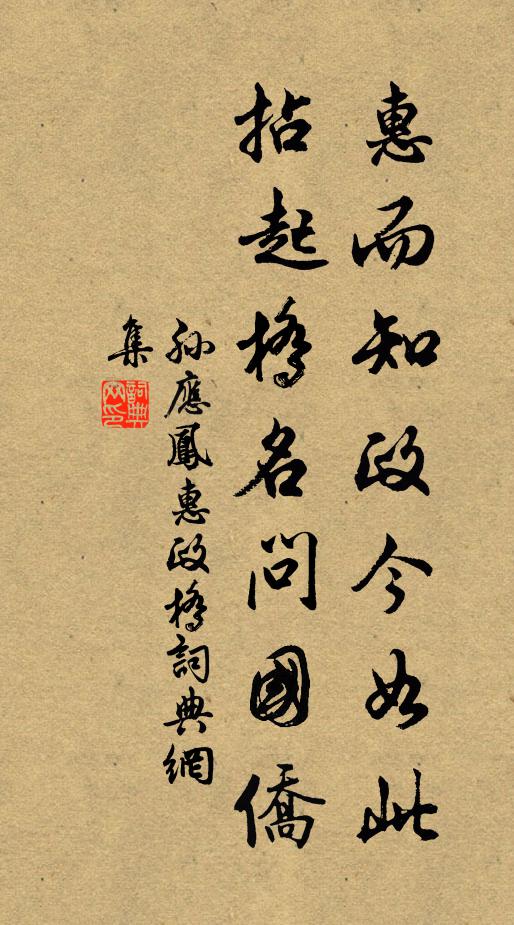 惠而知政今如此
拈起橋名問國僑
孙應鳳惠政橋詞典網
集
詞典
网印